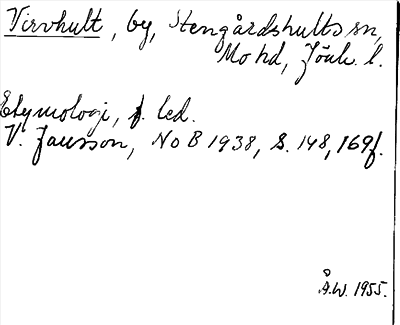 Virvhult, by, Stengårdshults sn,
Mo hd, Jönk. l.
Etymologi, f. led.
V. Jansson, NoB 1938, S. 148, 169f.
Å.W. 1955.